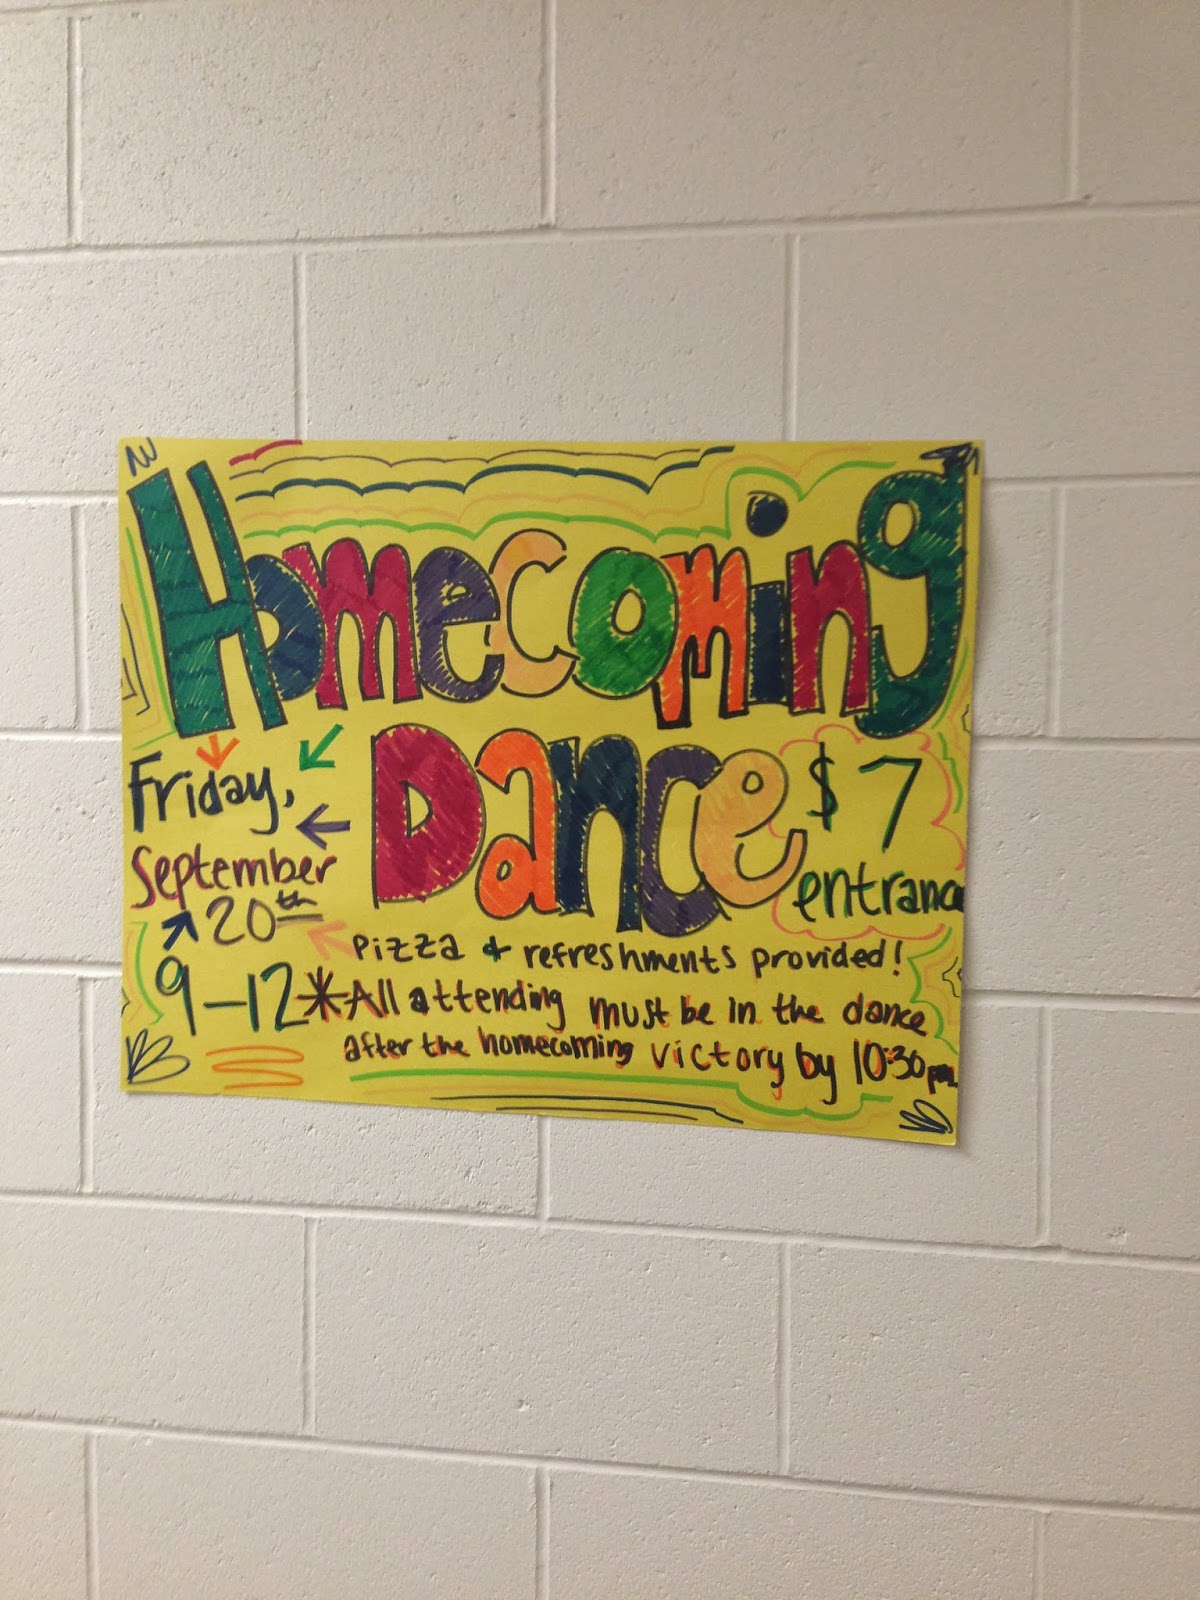 Homecoming
Dance
Friday,
September
20th
9-12
$7
entrance
Pizza & refreshments provided!
*All attending must be in the dance
after the homecoming victory by 10:30pm